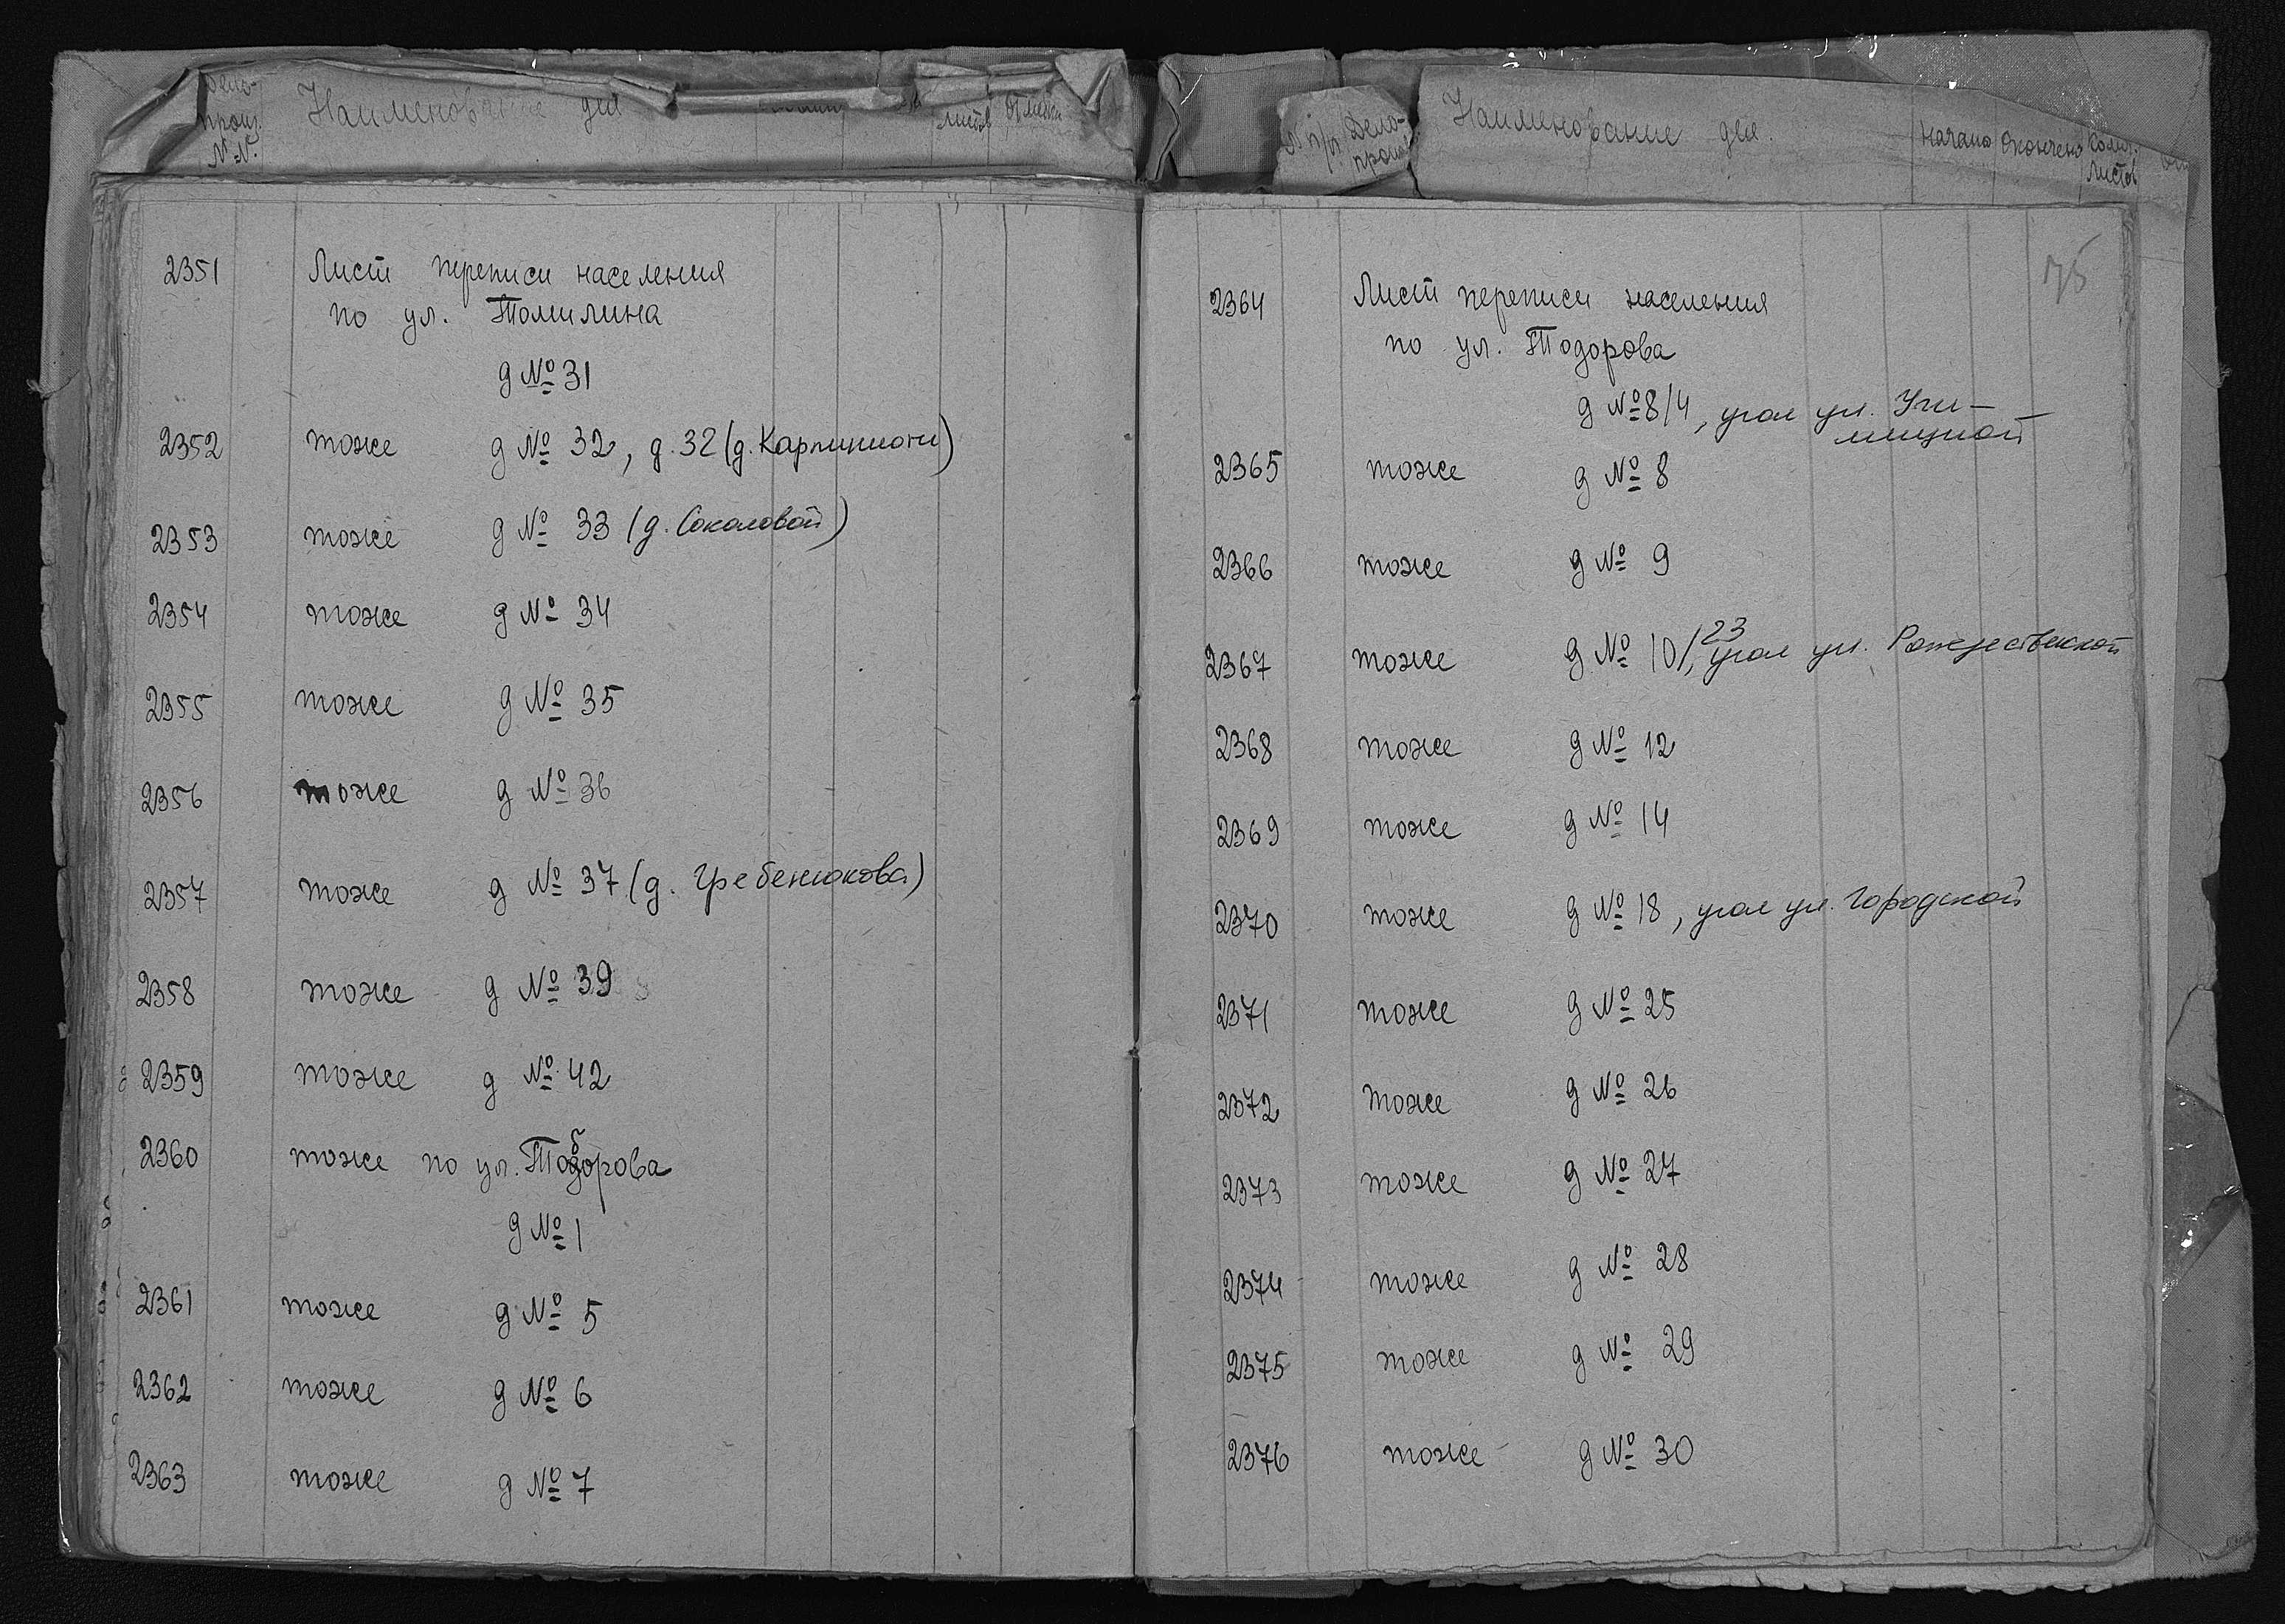 Дело-
произ.
№№.
Наименование дел
листов
Отметки
2351 Лист переписи населения
по ул. Томилина
д № 31
2352 тоже д № 32, д. 32 (д. Карпиниони)
2353 тоже д № 33 (д. Соколовой)
2354 тоже д № 34
2355 тоже д № 35
2356 тоже д № 36
2357 тоже д № 37 (д. Гребенюкова)
2358 тоже д № 39
2359 тоже д № 42
2360 тоже по ул. Тодорова
д № 1
2361 тоже д № 5
2362 тоже д № 6
2363 тоже д № 7
№ п/п
Дело-
произ
Наименование дел.
Начало
Окончено
Колич.
Листов
75
2364 Лист переписи населения
по ул. Тодорова
д № 8/4, угол ул. Учи-
лищной
2365 тоже д № 8
2366 тоже д № 9
2367 тоже д № 10/23, угол ул. Рождественской
2368 тоже д № 12
2369 тоже д № 14
2370 тоже д № 18, угол ул. Городской
2371 тоже д № 25
2372 тоже д № 26
2373 тоже д № 27
2374 тоже д № 28
2375 тоже д № 29
2376 тоже д № 30